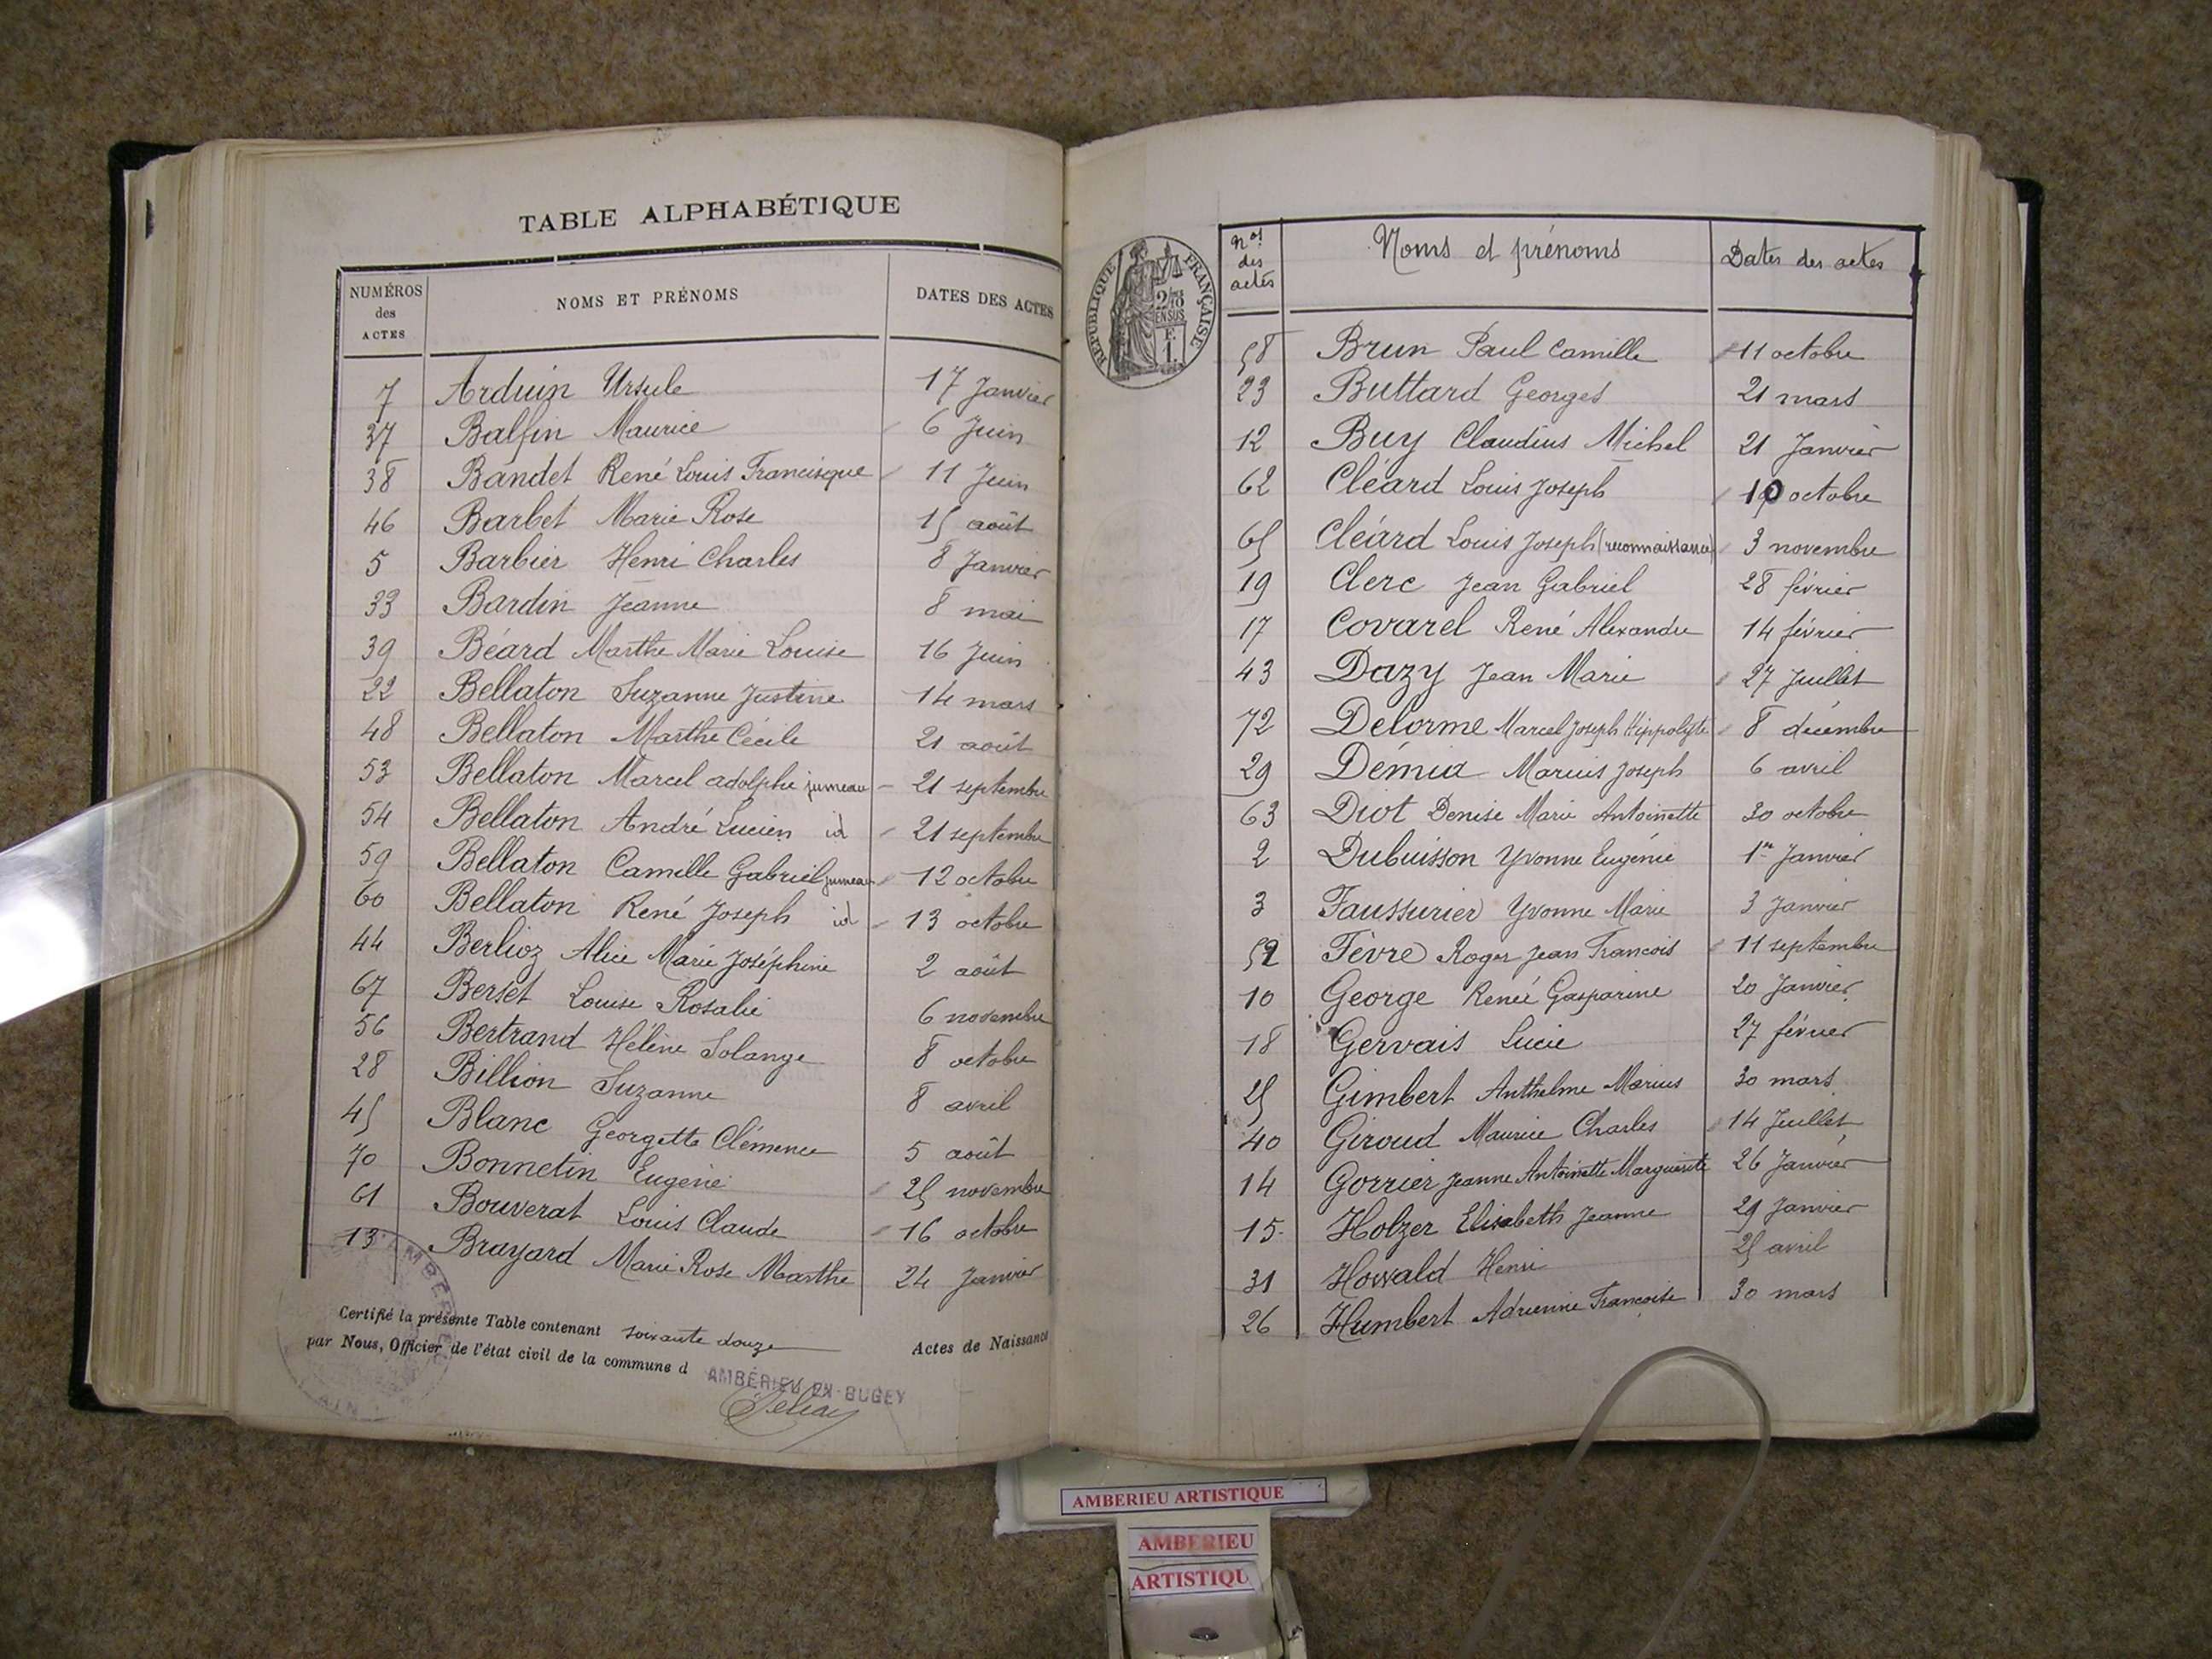 TABLE ALPHABÉTIQUE
NUMÉROS des ACTES NOMS ET PRÉNOMS DATES DES ACTES
7 Arduin Ursule 17 Janvier
37 Balfin Maurice 6 Juin
38 Bandet René Louis Francisque 11 Juin
46 Barbet Marie Rose 15 août
5 Barbier Henri Charles 8 Janvier
33 Bardin Jeanne 8 mai
39 Béard Marthe Marie Louise 16 Juin
22 Bellaton Suzanne Justine 14 mars
48 Bellaton Marthe Cécile 21 août
53 Bellaton Marcel adolphe jumeau 21 septembre
54 Bellaton André Lucien id 21 septembre
59 Bellaton Camille Gabriel jumeau 12 octobre
60 Bellaton René Joseph id 13 octobre
44 Berlioz Alice Marie Joséphine 2 août
67 Berset Louise Rosalie 6 novembre
56 Bertrand Hélène Solange 8 octobre
28 Billion Suzanne 8 avril
45 Blanc Georgette Clémence 5 août
70 Bonnetin Eugénie 25 novembre
61 Bouverat Louis Claude 16 octobre
13 Brayard Marie Rose Marthe 24 Janvier
Certifié la présente Table contenant soixante douze Actes de Naissance
par Nous, Officier de l'état civil de la commune d AMBÉRIEU EN BUGEY
RÉPUBLIQUE FRANÇAISE
Nos des actes Noms et prénoms Dates des actes
58 Brun Paul Camille 11 octobre
23 Buttard Georges 21 mars
12 Buy Claudius Michel 21 Janvier
62 Cléard Louis Joseph 10 octobre
65 Cléard Louis Joseph (reconnaissance) 3 novembre
19 Clerc Jean Gabriel 28 février
17 Covarel René Alexandre 14 février
43 Dazy Jean Marie 27 Juillet
72 Delorme Marcel Joseph Hippolyte 8 décembre
29 Démia Marius Joseph 6 avril
63 Diot Denise Marie Antoinette 30 octobre
2 Dubuisson Yvonne Eugénie 1er Janvier
3 Faussurier Yvonne Marie 3 Janvier
52 Fèvre Roger Jean Francois 11 septembre
10 George Renée Gasparine 20 Janvier
18 Gervais Lucie 27 février
25 Gimbert Anthelme Marius 30 mars
40 Giroud Maurice Charles 14 Juillet
14 Gorrier Jeanne Antoinette Marguerite 26 Janvier
15 Holzer Elisabeth Jeanne 29 Janvier
31 Howald Henri 25 avril
26 Humbert Adrienne Francoise 30 mars
AMBERIEU ARTISTIQUE
AMBERIEU
ARTISTIQU